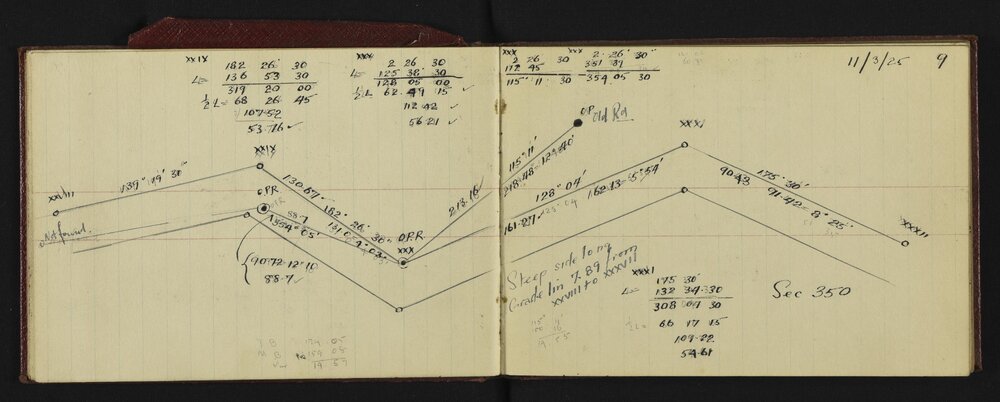 XXIX
182 26 30
L= 136 53 30
319 20 00
½L= 68 26 45
107·52
53·76 ✓
XXX
2 26 30
L= 125 38 30
128 05 00
½L 62 49 15 ✓
112·42
56·21 ✓
XXX
2 26 30
112 45
115 11 30
XXX
2 26 30
354 05 30
11/3/25
9
O.P. Old Rd
XXIX
XXXI
XXVIII
139° 49' 30"
130.67
182° 26' 30"
O.P.R
88·7
O.P.R.
XXX
Not found.
90·72·12·10
88·7 ✓
213·16
115° 11'
218·48=12° 40'
128° 04'
161·27 ✓
162·13=5° 54'
175° 30'
90·43
91·42=8° 25'
XXXII
Steep side long
Grade 1 in 7.89 from
XXVIII to XXXIII
XXXI
175 30
L= 132 34 30
308 04 30
½L= 66 17 15
109·22
54·61
Sec 350